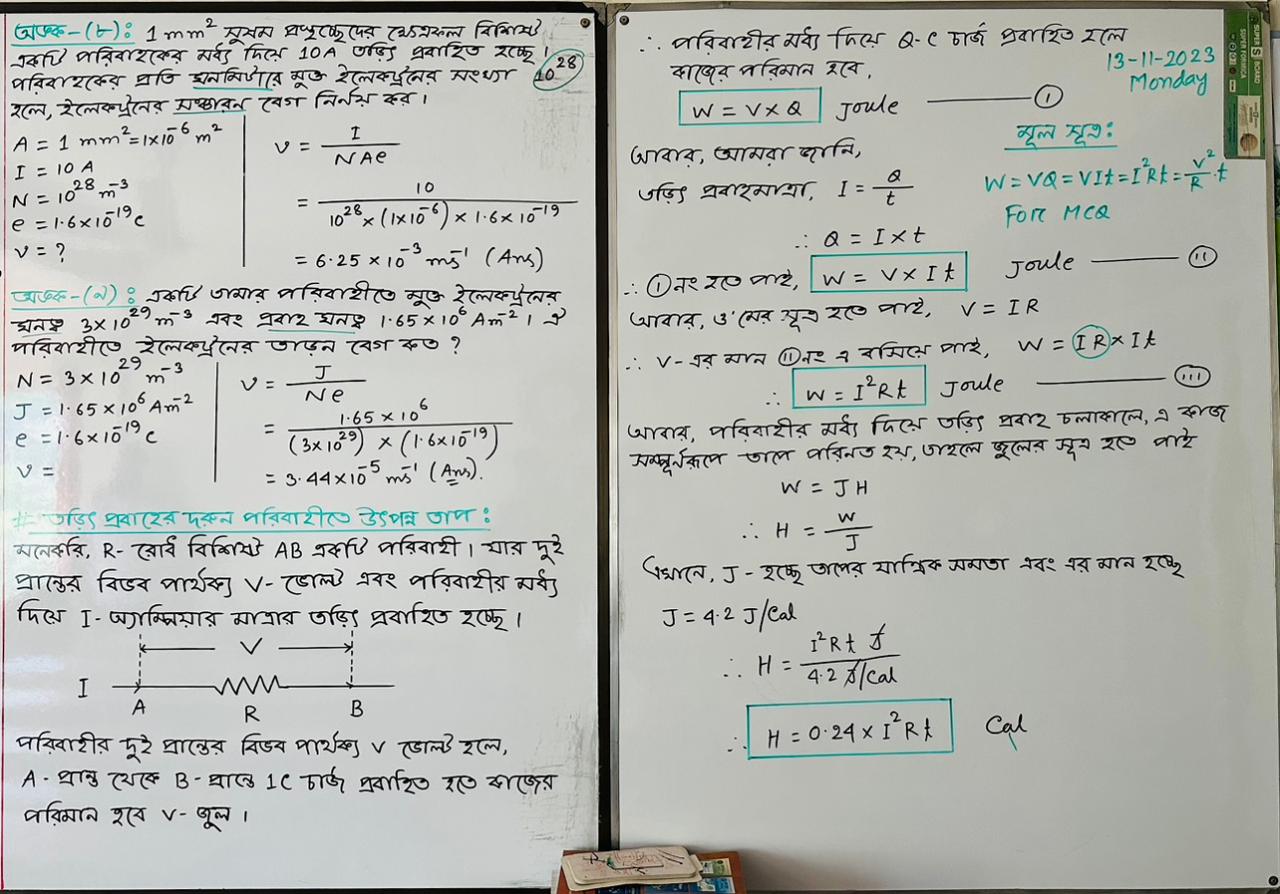 অংক-(৮): 1 mm² সুষম প্রস্থচ্ছেদের ক্ষেত্রফল বিশিষ্ট
একটি পরিবাহকের মধ্য দিয়ে 10A তড়িৎ প্রবাহিত হচ্ছে।
পরিবাহকের প্রতি ঘনমিটারে মুক্ত ইলেকট্রনের সংখ্যা 10²⁸
হলে, ইলেকট্রনের সঞ্চারন বেগ নির্নয় কর।
A = 1 mm² = 1×10⁻⁶ m²
I = 10 A
N = 10²⁸ m⁻³
e = 1·6×10⁻¹⁹ C
v = ?
v = I / NAe
= 10 / 10²⁸ × (1×10⁻⁶) × 1·6×10⁻¹⁹
= 6·25 × 10⁻³ ms⁻¹ (Ans)
অংক-(৯): একটি তামার পরিবাহীতে মুক্ত ইলেকট্রনের
ঘনত্ব 3×10²⁹ m⁻³ এবং প্রবাহ ঘনত্ব 1·65×10⁶ Am⁻²। ঐ
পরিবাহীতে ইলেকট্রনের তাড়ন বেগ কত ?
N = 3×10²⁹ m⁻³
J = 1·65×10⁶ Am⁻²
e = 1·6×10⁻¹⁹ C
v =
v = J / Ne
= 1·65×10⁶ / (3×10²⁹) × (1·6×10⁻¹⁹)
= 3·44×10⁻⁵ ms⁻¹ (Ans).
# তড়িৎ প্রবাহের দরুন পরিবাহীতে উৎপন্ন তাপ :
মনেকরি, R- রোধ বিশিষ্ট AB একটি পরিবাহী। যার দুই
প্রান্তের বিভব পার্থক্য V- ভোল্ট এবং পরিবাহীর মধ্য
দিয়ে I- অ্যাম্পিয়ার মাত্রার তড়িৎ প্রবাহিত হচ্ছে।
V
I
A R B
পরিবাহীর দুই প্রান্তের বিভব পার্থক্য V ভোল্ট হলে,
A - প্রান্ত থেকে B - প্রান্তে 1C চার্জ প্রবাহিত হতে কাজের
পরিমান হবে V- জুল।
∴ পরিবাহীর মধ্য দিয়ে Q-C চার্জ প্রবাহিত হলে
কাজের পরিমান হবে,
13-11-2023
Monday
W = V×Q Joule ——— (i)
মূল সূত্র:
W = VQ = VIt = I²Rt = V²/R · t
For MCQ
আবার, আমরা জানি,
তড়িৎ প্রবাহমাত্রা, I = Q/t
∴ Q = I×t
∴ (i) নং হতে পাই, W = V×It Joule ——— (ii)
আবার, ও'মের সূত্র হতে পাই, V = IR
∴ V-এর মান (ii) নং এ বসিয়ে পাই, W = IR×It
∴ W = I²Rt Joule ——— (iii)
আবার, পরিবাহীর মধ্য দিয়ে তড়িৎ প্রবাহ চলাকালে, এ কাজ
সম্পূর্নরূপে তাপে পরিনত হয়, তাহলে জুলের সূত্র হতে পাই
W = JH
∴ H = W/J
এখানে, J - হচ্ছে তাপের যান্ত্রিক সমতা এবং এর মান হচ্ছে
J = 4·2 J/Cal
∴ H = I²Rt J / 4·2 J/Cal
∴ H = 0·24 × I²Rt Cal
SUPER BOARD
SUPER FORMICA